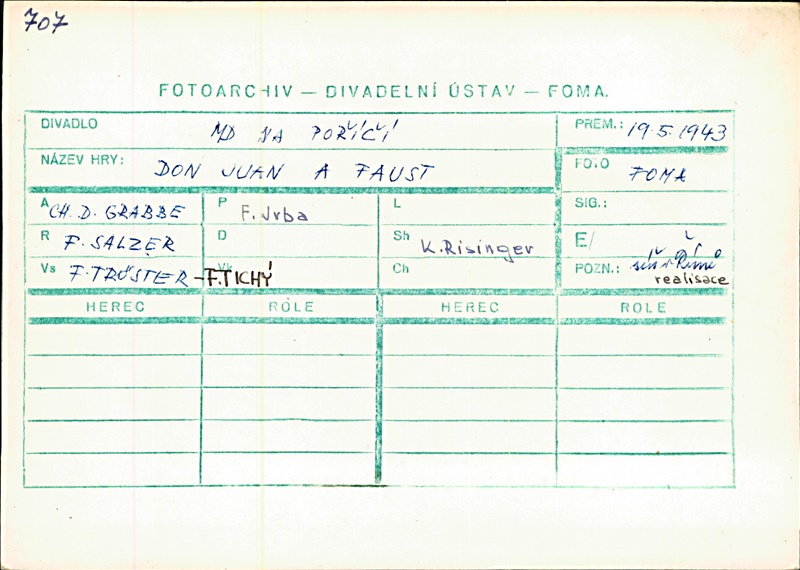 707
FOTOARCHIV — DIVADELNÍ ÚSTAV — FOMA.
DIVADLO MD NA POŘÍČÍ PREM.: 19.5.1943
NÁZEV HRY: DON JUAN A FAUST FOTO FOMA
A CH. D. GRABBE P F. Vrba L SIG.:
R F. SALZER D Sh K. Risinger E/
Vs F. TRÖSTER – F. TICHÝ Ch POZN.: síň v Římě
realisace
HEREC ROLE HEREC ROLE